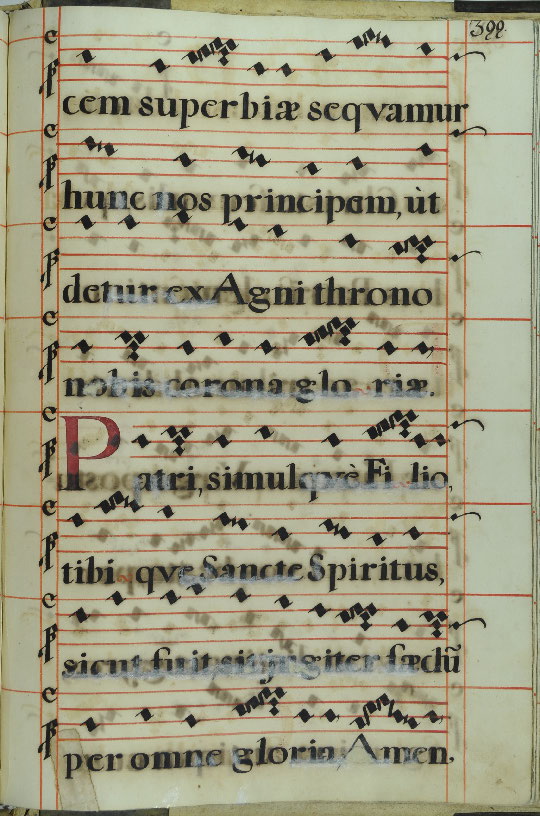 399
cem superbiæ seqvamur
hunc nos principem, ùt
detur ex Agni throno
nobis corona glo riæ.
Patri, simulqvè Fi lio,
tibi qve Sancte Spiritus,
sicut fuit sit jugiter sæclū
per omne gloria Amen.